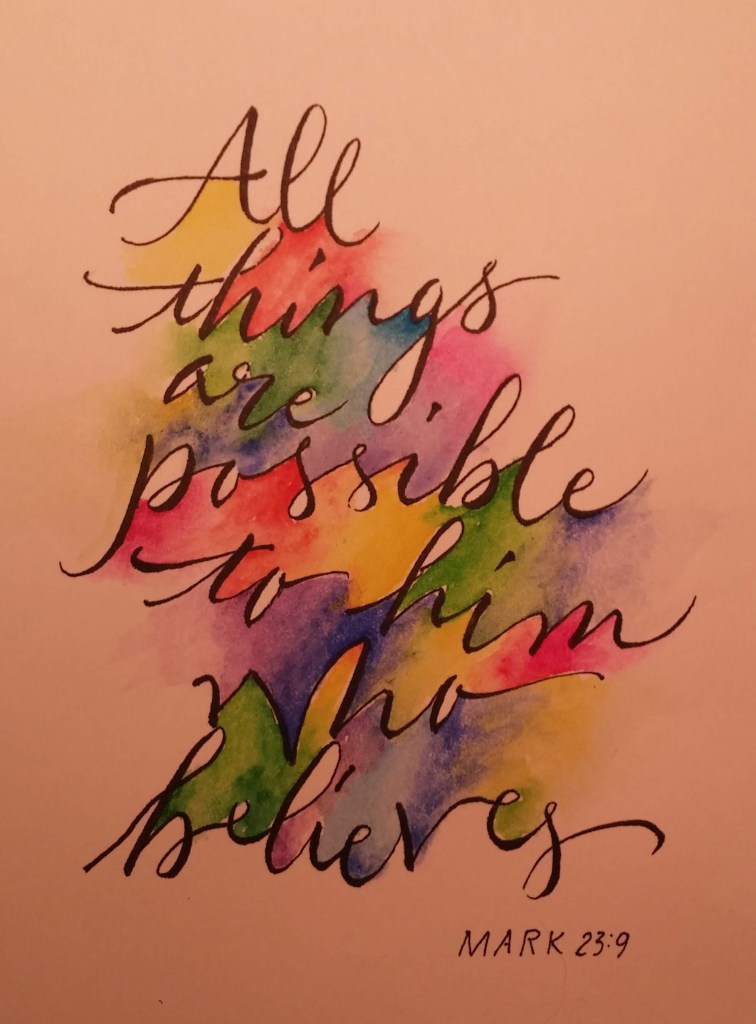 All
things
are
possible
to him
who
believes
MARK 23:9